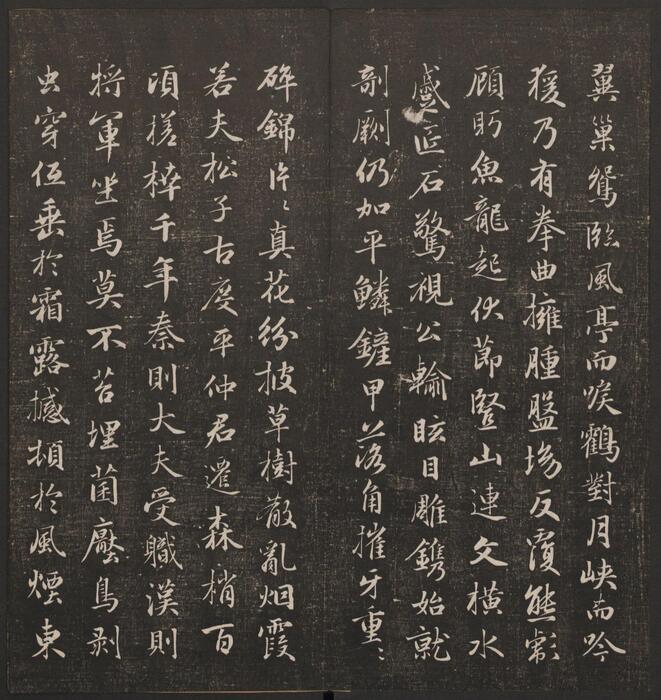 翼巢鴛臨風亭而唳鶴對月峽而吟
猨乃有拳曲擁腫盤坳反覆熊彪
顧盻魚龍起伏節豎山連文橫水
蹙匠石驚視公輸眩目雕鐫始就
剞劂仍加平鱗鏟甲落角摧牙重〻
碎錦片〻真花紛披草樹散亂烟霞
若夫松子古度平仲君遷森梢百
頃槎枿千年秦則大夫受職漢則
將軍坐焉莫不苔埋菌壓鳥剥
虫穿低垂於霜露撼頓於風煙東